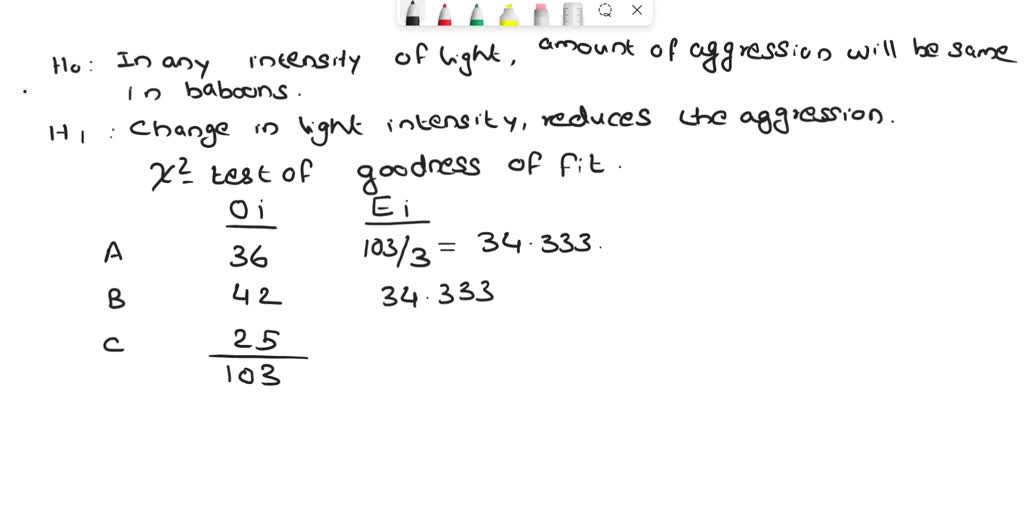 H0: In any intensity of light, amount of aggression will be same
in baboons.
H1: Change in light intensity, reduces the aggression.
χ² test of goodness of fit.
Oi Ei
A 36 103/3 = 34.333.
B 42 34.333
C 25
103